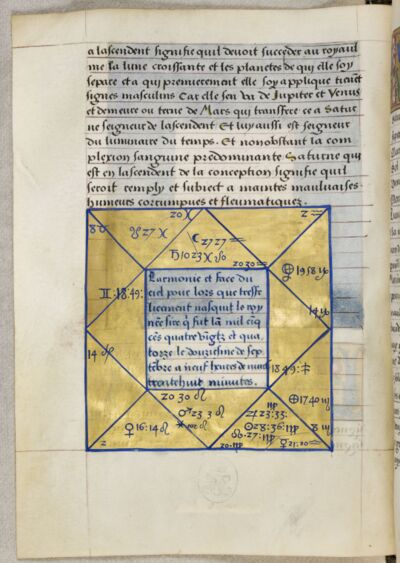 a lascendent signifie quil devoit succeder au royaul
me la lune croissante et les planetes de qui elle soy
separe et a qui premierement elle soy applique tienent
signes masculins Car elle sen va de Jupiter et Venus
et demeure ou terne de Mars qui transfere ce a Satur
ne seigneur de lascendent Et luy aussi est seigneur
du luminaire du temps. Et nonobstant la com
plexion sanguine predominante Saturne qui
est en lascendent de la conception signifie quil
seroit remply et subiect a maintes mauluaises
humeurs corrumpues et fleumatiques.
20 ♓
2 ♒
8 ♉
☋ 27 ♓
☾ 27 27 ♒
♄ 10 23 ♓
20 30 ♒
19 58 ♑
14 ♑
♊ : 18 : 49 :
Larmonie et face du
ciel pour lors que tresfe
licement nasquit le roy
nre sire q fut la mil ciq
ces quatre vigtz et qua
torze le douziesme de sep
tebre a neuf heures de nuict
trentehuit minutes.
14 ♋
18 49 : ♐
20 30 ♌
♂ 23 3 ♌
♀ 16 : 14 ♌
2
♃ 23 : 33 :
☉ 28 : 36 : ♍
☊ : 27 : ♍
20 : ♍
☿ 21 : 20 ♎
⊕ 17 40 ♏
8 ♏